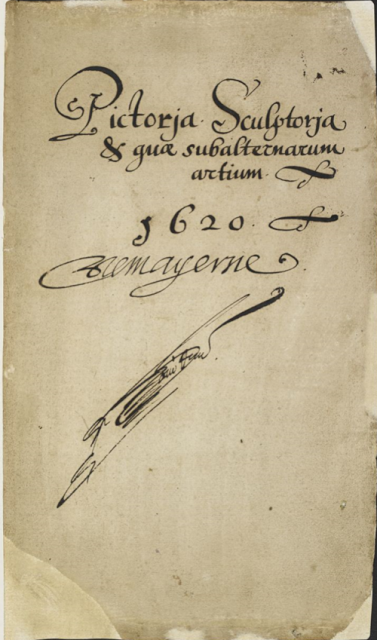 Pictorja Sculptorja
& quæ subalternarum
artium
1620.
Demayerne